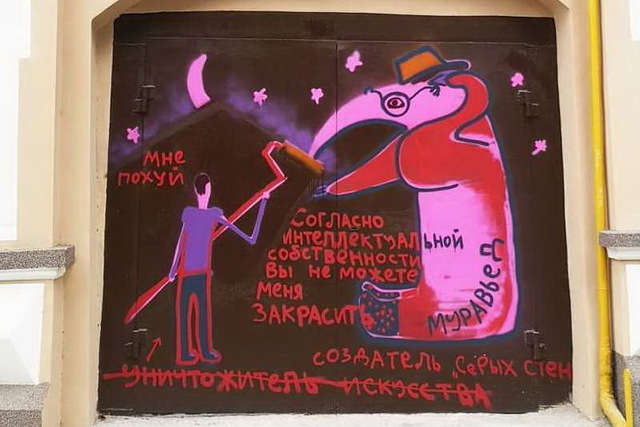 мне
похуй
Согласно
интеллектуальной
собственности
вы не можете
меня
закрасить
муравьед
создатель „серых стен
уничтожитель искусства